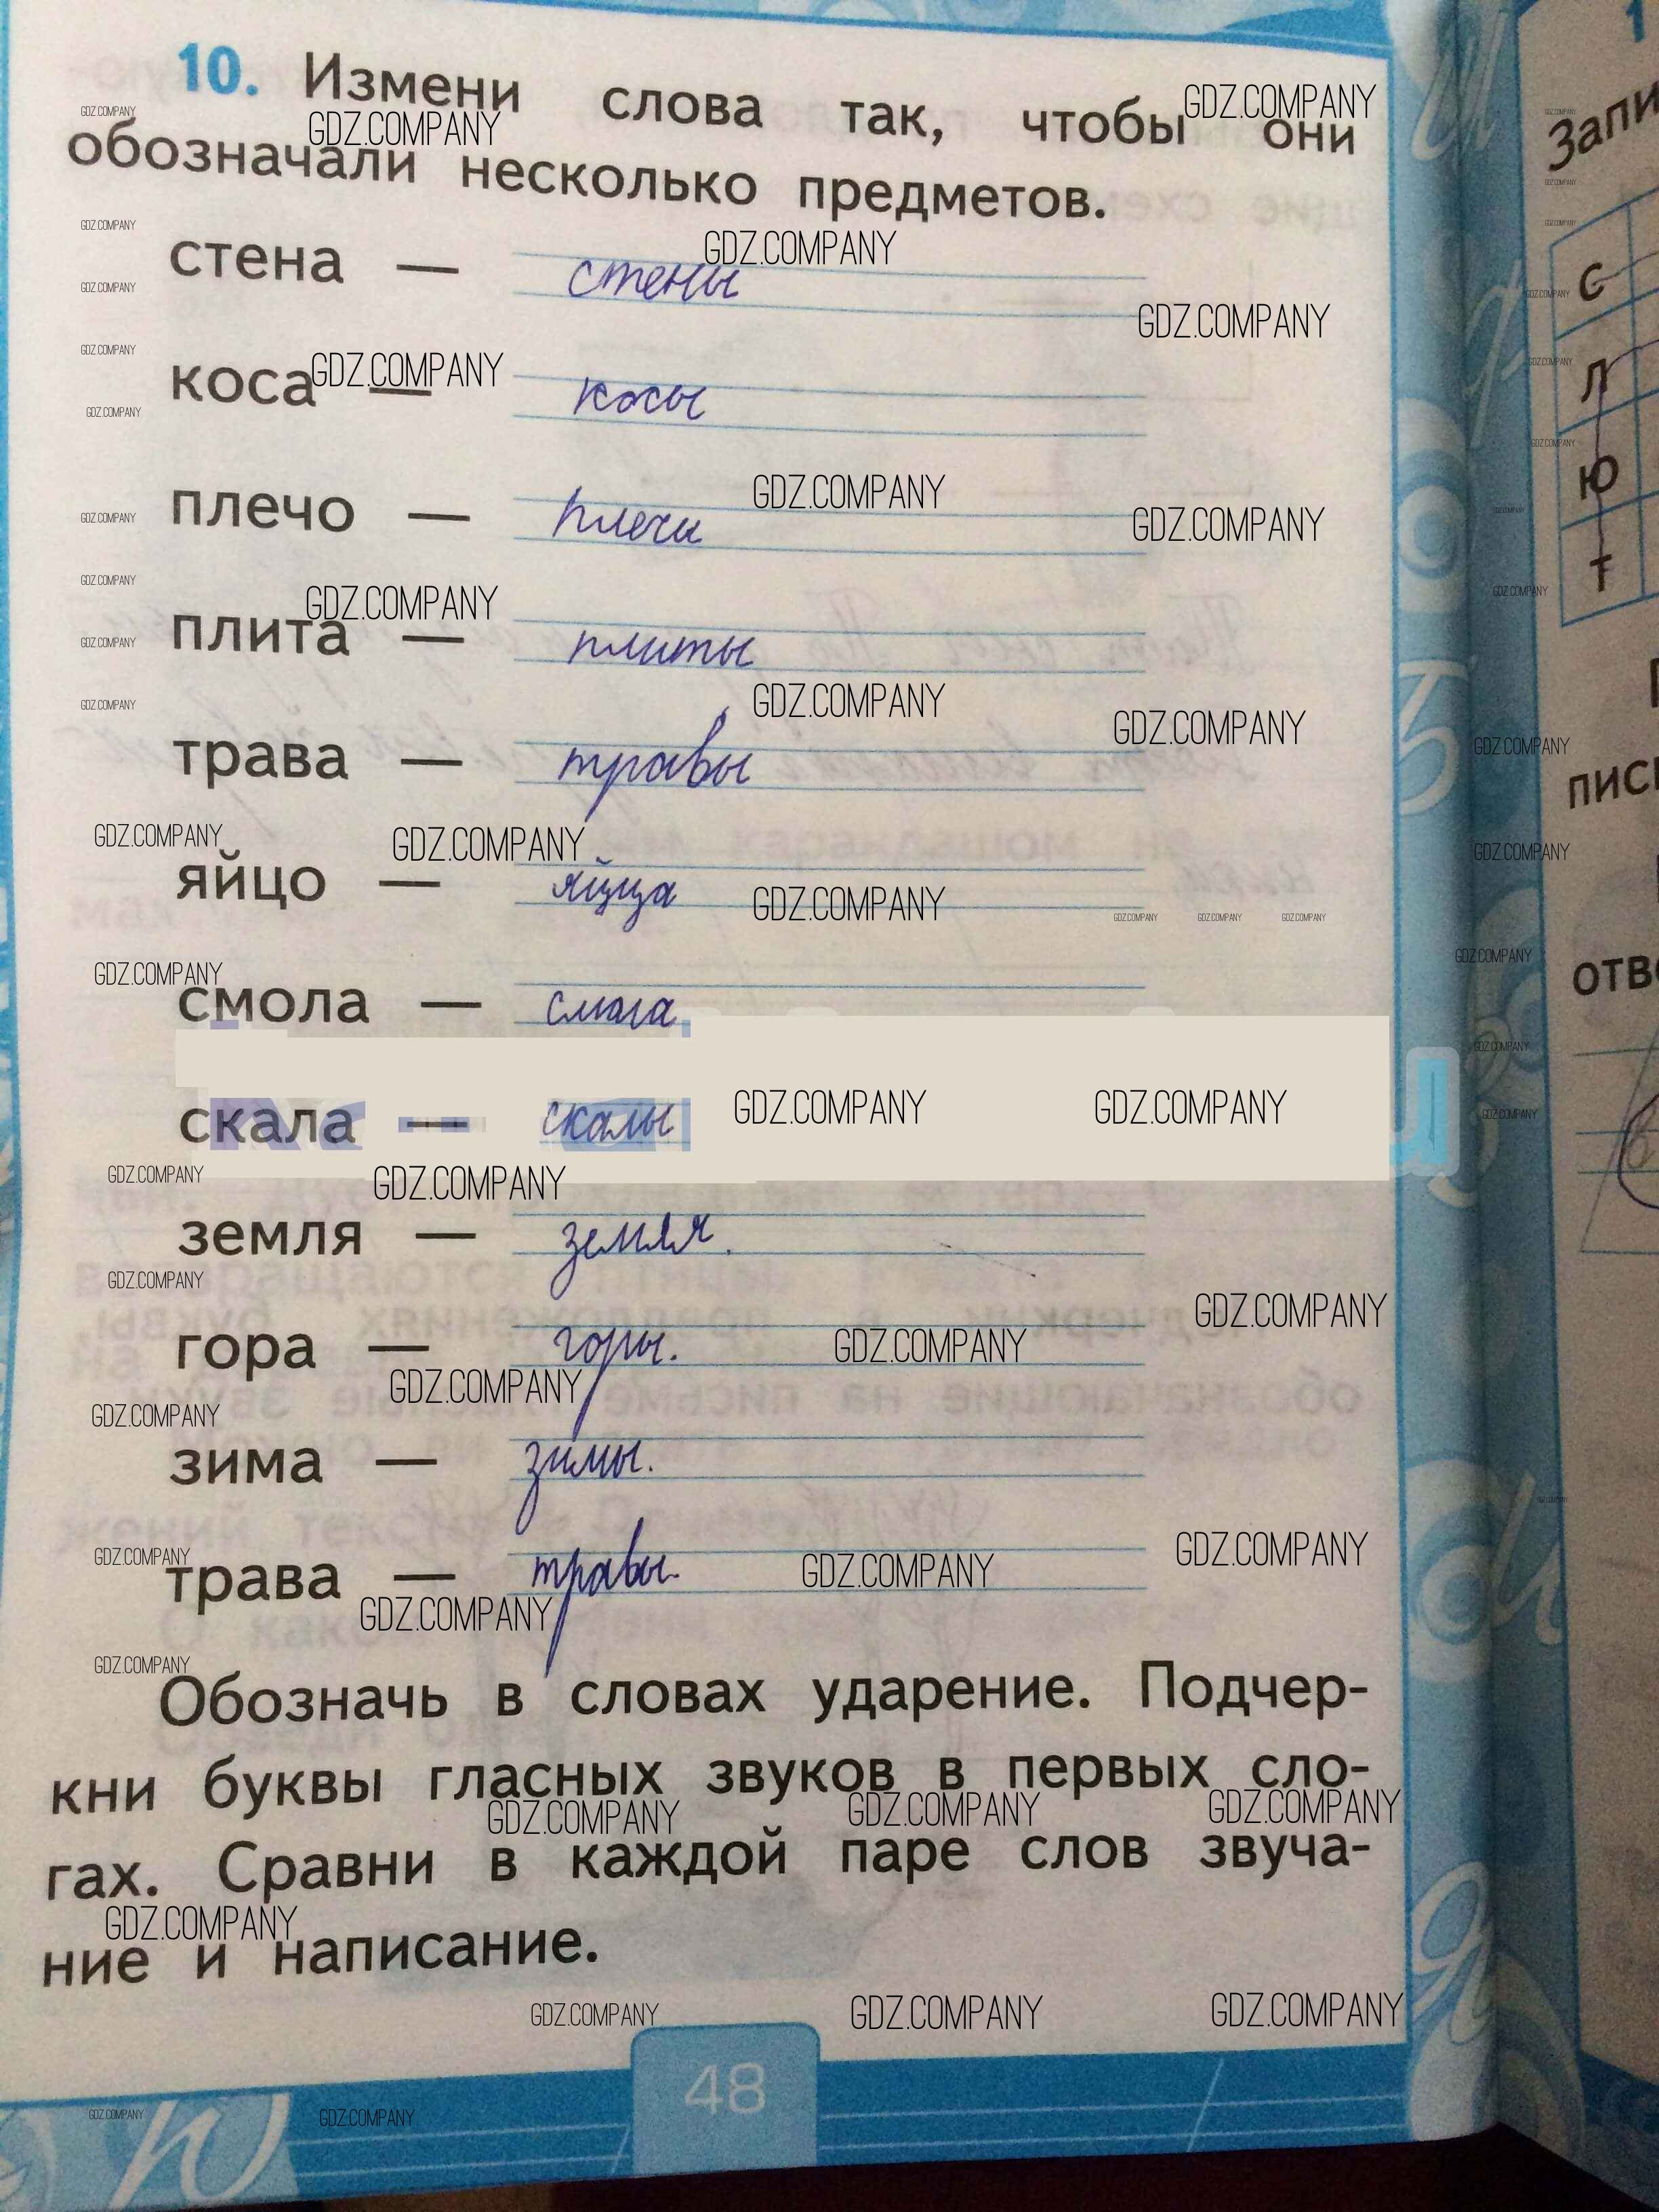 10. Измени слова так, чтобы они
обозначали несколько предметов.
стена — стены
коса — косы
плечо — плечи
плита — плиты
трава — травы
яйцо — яйца
смола —
скала — скалы
земля — земля.
гора — горы.
зима — зимы.
трава — травы.
Обозначь в словах ударение. Подчер-
кни буквы гласных звуков в первых сло-
гах. Сравни в каждой паре слов звуча-
ние и написание.
48
GDZ.COMPANY
Запи
с
л
ю
т
пис
отв